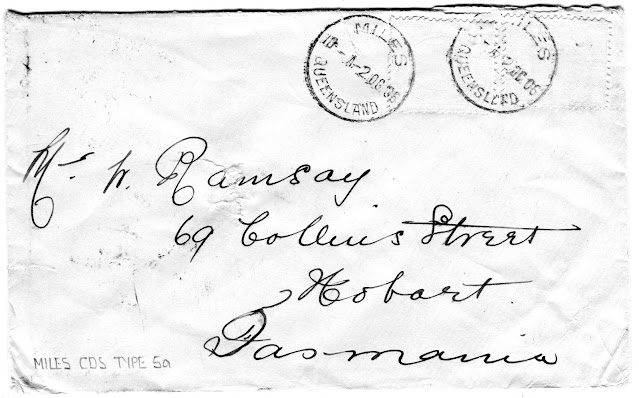 MILES
10-A-2.OC.06
QUEENSLAND
MILES
-A-2.OC.06
QUEENSLAND
Mr W. Ramsay
69 Collins Street
Hobart.
Tasmania
MILES CDS TYPE 5a